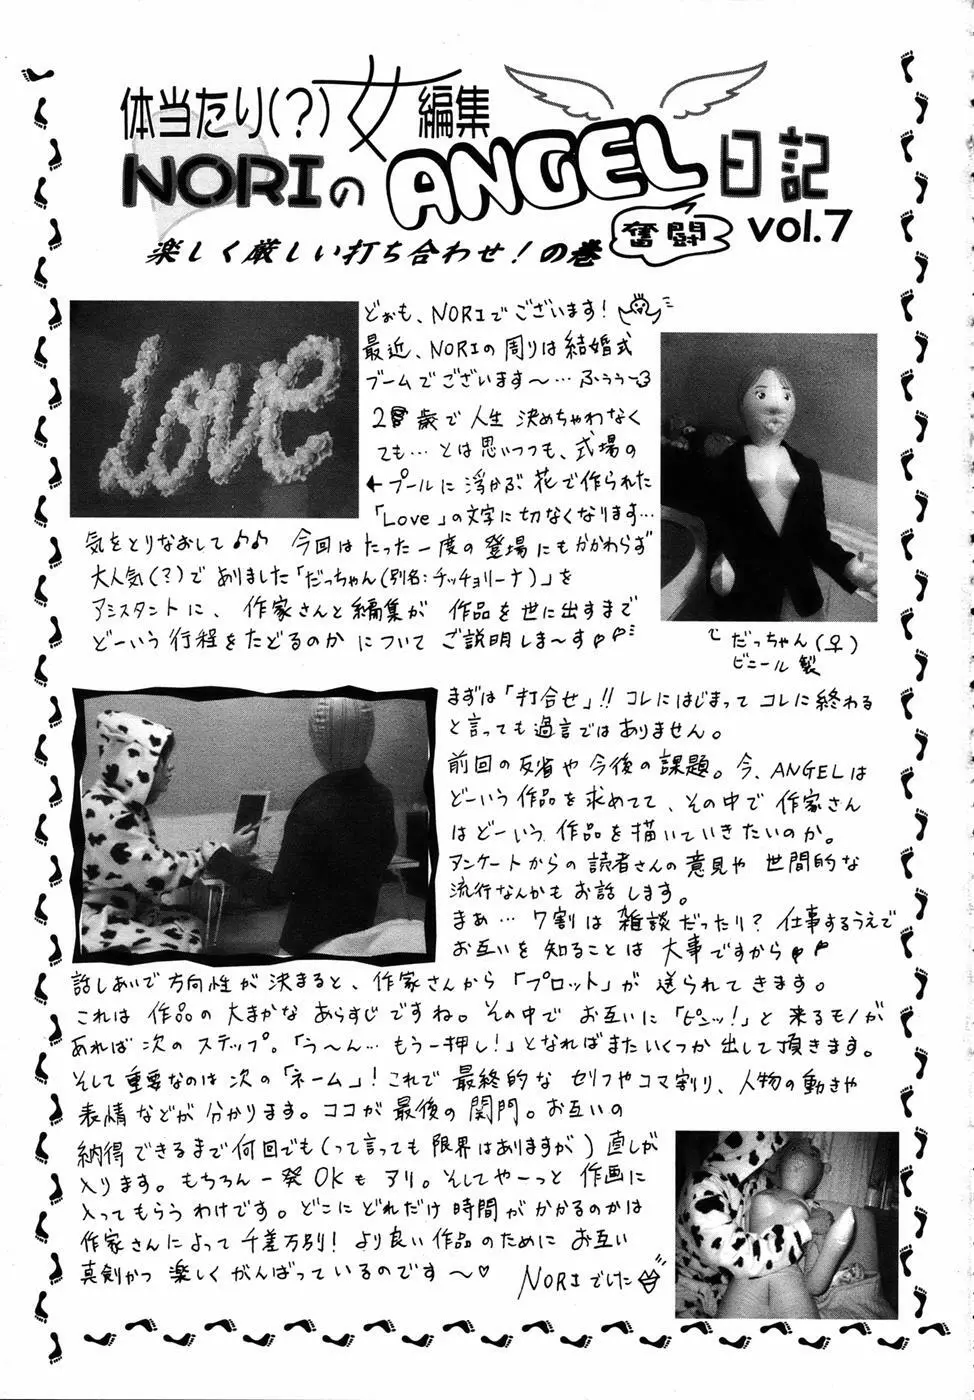 体当たり(?)女編集
NORIのANGEL日記
奮闘
vol.7
楽しく厳しい打ち合わせ!の巻
どぉも、NORIでございます!
最近、NORIの周りは結婚式
ブームでございます〜…ふぅぅ〜
歳で人生決めちゃわなく
ても…とは思いつつも、式場の
←プールに浮かぶ花で作られた
「Love」の文字に切なくなります…
気をとりなおして♪♪ 今回はたった一度の登場にもかかわらず
大人気(?)でありました「だっちゃん(別名:チッチョリーナ)」を
アシスタントに、作家さんと編集が作品を世に出すまで
どーいう行程をたどるのかについてご説明しま〜す
だっちゃん(♀)
ビニール製
まずは「打合せ」!!コレにはじまってコレに終わる
と言っても過言ではありません。
前回の反省や今後の課題。今、ANGELは
どーいう作品を求めてて、その中で作家さん
はどーいう作品を描いていきたいのか。
アンケートからの読者さんの意見や世間的な
流行なんかもお話します。
まぁ…7割は雑談だったり?仕事するうえで
お互いを知ることは大事ですから
話しあいで方向性が決まると、作家さんから「プロット」が送られてきます。
これは作品の大まかなあらすじですね。その中でお互いに「ピンッ!」と来るモノが
あれば次のステップ。「う〜ん…もう一押し!」となればまたいくつか出して頂きます。
そして重要なのは次の「ネーム」!これで最終的なセリフやコマ割り、人物の動きや
表情などが分かります。ココが最後の関門。お互いの
納得できるまで何回でも(って言っても限界はありますが)直しが
入ります。もちろん一発OKもアリ。そしてや〜っと作画に
入ってもらうわけです。どこにどれだけ時間がかかるのかは
作家さんによって千差万別!より良い作品のためにお互い
真剣かつ楽しくがんばっているのです〜♡
NORIでした
love